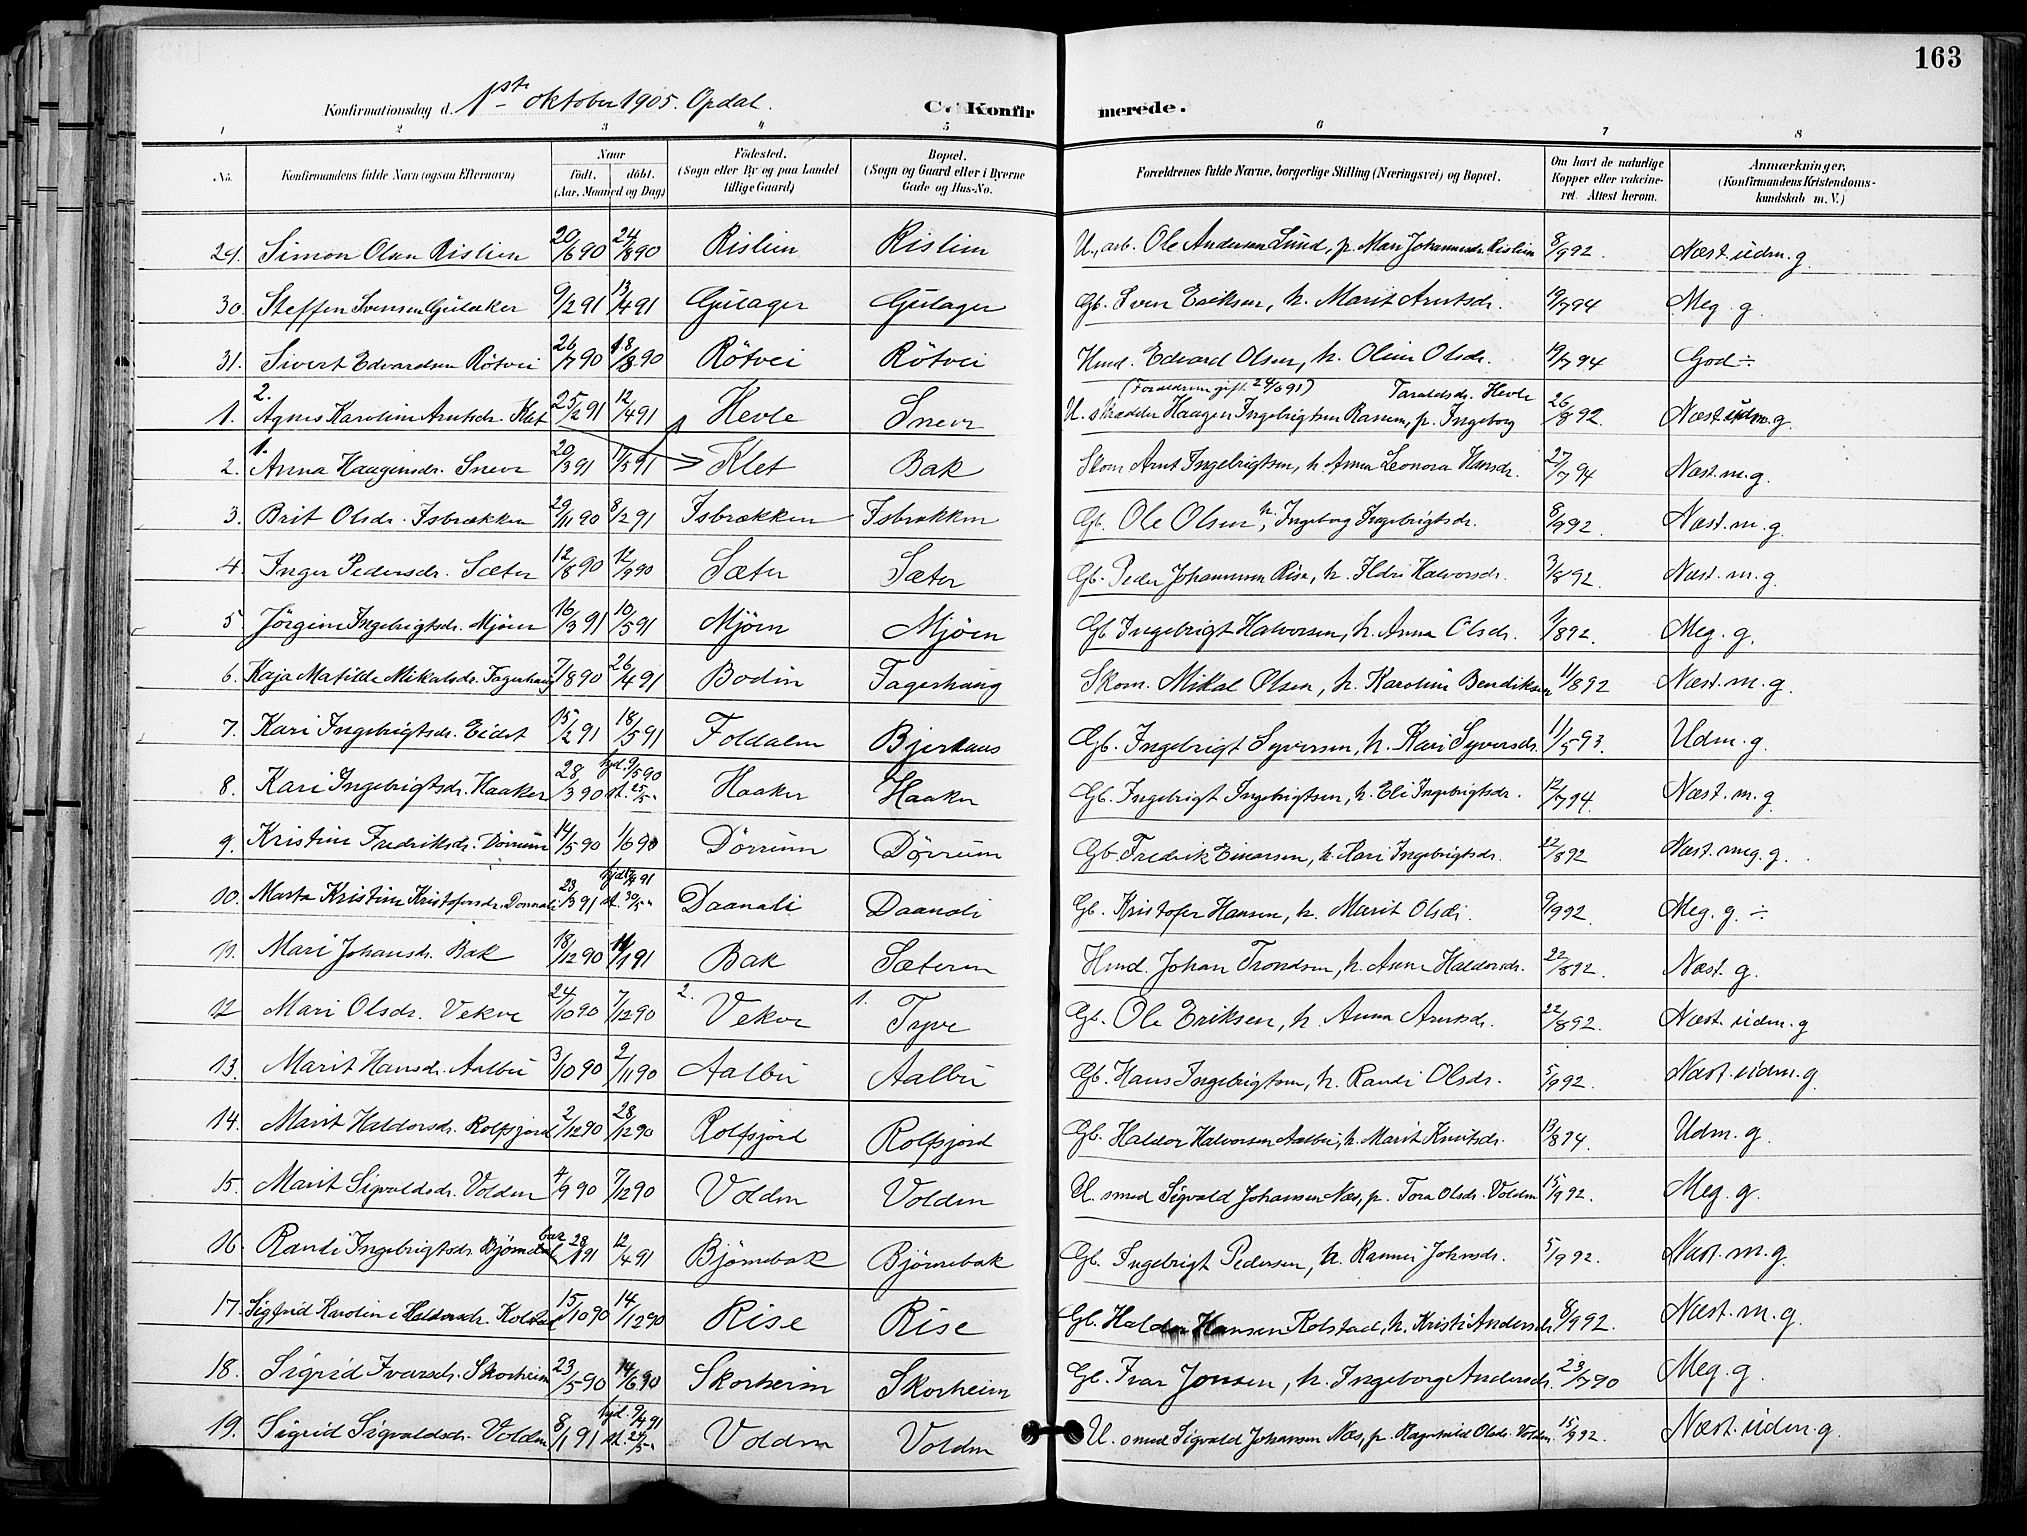 163
Konfirmationsdag d. 1ste oktober 1905. Opdal. C. Konfirmerede.
1 2 3 4 5 6 7 8
No. Konfirmandens fulde Navn (ogsaa Efternavn) Naar födt. döbt. (Aar, Maaned og Dag) Födested. (Sogn eller By og paa Landet tillige Gaard) Bopæl. (Sogn og Gaard eller i Byerne Gade og Hus-No. Forældrenes fulde Navne, borgerlige Stilling (Næringsvei) og Bopæl. Om havt de naturlige Kopper eller vakcineret. Attest herom. Anmærkninger, (Konfirmandens Kristendomskundskab m. V.)
29. Simon Olsen Rislien 20/6 90 24/8 90 Rislien Rislien U., arb. Ole Andersen Lund, p. Mari Johannesdr. Rislien 8/9 92. Næst. udm. g.
30. Steffen Svensen Gulaker 9/2 91 13/4 91 Gulager Gulager Gb. Sven Eriksen, h. Marit Arntsdr. 19/7 94 Meg. g.
31. Sivert Edvardsen Rötvei 26/7 90 18/8 90 Rötvei Rötvei Hmd. Edvard Olsen, h. Oline Olsdr. 19/7 94 God ÷
1. 2. Agnes Karoline Arntsdr. Klet 25/2 91 12/4 91 Hevle Sneve (Forældrene gift 24/3 91) U. skrædder Haagen Ingebrigtsen Ransem, p. Ingeborg Taraldsdr. Hevle 26/8 92. Næst. udm. g.
2. 1. Anna Haagensdr. Sneve 20/3 91 17/5 91 Klet Bak Skom. Arnt Ingebrigtsen, h. Anna Leonora Hansdr. 27/7 94 Næst. m. g.
3. Brit Olsdr. Isbrækken 29/11 90 8/2 91 Isbrækken Isbrækken Gb. Ole Olsen, h. Ingeborg Ingebrigtsdr. 8/9 92. Næst. m. g.
4. Inger Pedersdr. Sæter 12/8 90 12/9 90 Sæter Sæter Gb. Peder Johannesen Rise, h. Ildri Halvorsdr. 3/8 92. Næst. m. g.
5 Jörgine Ingebrigtsdr. Mjöen 16/3 91 10/5 91 Mjöen Mjöen Gb. Ingebrigt Halvorsen, h. Anna Olsdr. 9/8 92. Meg. g.
6. Kaja Matilde Mikalsdr. Fagerhaug 7/8 90 26/4 91 Bodin Fagerhaug Skom. Mikal Olsen, h. Karoline Bendiksen 11/8 92 Næst. m. g.
7. Kari Ingebrigtsdr. Eidet 15/2 91 18/5 91 Foldalen Bjerkaas Gb. Ingebrigt Syversen, h. Kari Syversdr. 11/5 93. Udm. g.
8. Kari Ingebrigtsdr. Haaker 28/3 90 hjd. 9/5 90 st. 25/5 " Haaker Haaker Gb. Ingebrigt Ingebrigtsen, h. Eli Ingebrigtsdr. 12/7 94. Næst. m. g
9. Kristine Fredriksdr. Dörrum 14/5 90 1/6 90 Dörrum Dörrum Gb. Fredrik Einarsen, h. Mari Ingebrigtsdr. 22/8 92 Næst. meg. g.
10. Marta Kristine Kristofersdr. Donnali 23/3 91 hjd. 7/4 91 st. 30/5 " Daanali Daanali Gb. Kristofer Hansen, h. Marit Olsdr. 9/9 92 Meg. g. ÷
11. Mari Johansdr. Bak 18/12 90 11/1 91 Bak Sæteren Hmd. Johan Trondsen, h. Anne Haldorsdr. 22/8 92. Næst. g.
12 Mari Olsdr. Vekve 24/10 90 7/12 90 2. Vekve 1. Tyve Gb. Ole Eriksen, h. Anna Arntsdr. 22/8 92. Næst. udm. g
13. Marit Hansdr. Aalbu 3/10 90 2/11 90 Aalbu Aalbu Gb. Hans Ingebrigtsen, h. Randi Olsdr. 5/9 92. Næst. udm. g.
14. Marit Haldorsdr. Rolfsjord 2/12 90 28/12 90 Rolfsjord Rolfsjord Gb. Haldor Halvorsen Aalbu, h. Marit Knutsdr. 13/8 94. Udm. g.
15. Marit Sigvaldsdr. Volden 4/9 90 7/12 90 Volden Volden U. smed Sigvald Johansen Næs, p. Tora Olsdr. Volden 15/9 92. Meg. g.
16. Randi Ingebrigtsdr. Björnebak 28/1 91 12/4 91 Björnebak Björnebak Gb. Ingebrigt Pedersen, h. Rannei Johnsdr. 5/9 92. Næst. m. g.
17. Sigfrid Karoline Haldorsdr. Kolstad 15/10 90 14/12 90 Rise Rise Gb. Haldor Hansen Kolstad, h. Kristi Andersdr 8/9 92. Næst. m. g.
18. Sigrid Ivarsdr. Skorheim 23/5 90 14/6 90 Skorheim Skorheim Gb. Ivar Jonsen, h. Ingeborg Andersdr. 23/7 90 Meg. g.
19. Sigrid Sigvaldsdr. Volden 8/1 91 hjd. 9/4 91 st. 24/5 " Volden Volden U. smed Sigvald Johansen Næs, p. Ragnhild Olsdr. Volden 15/9 92. Næst. udm. g.